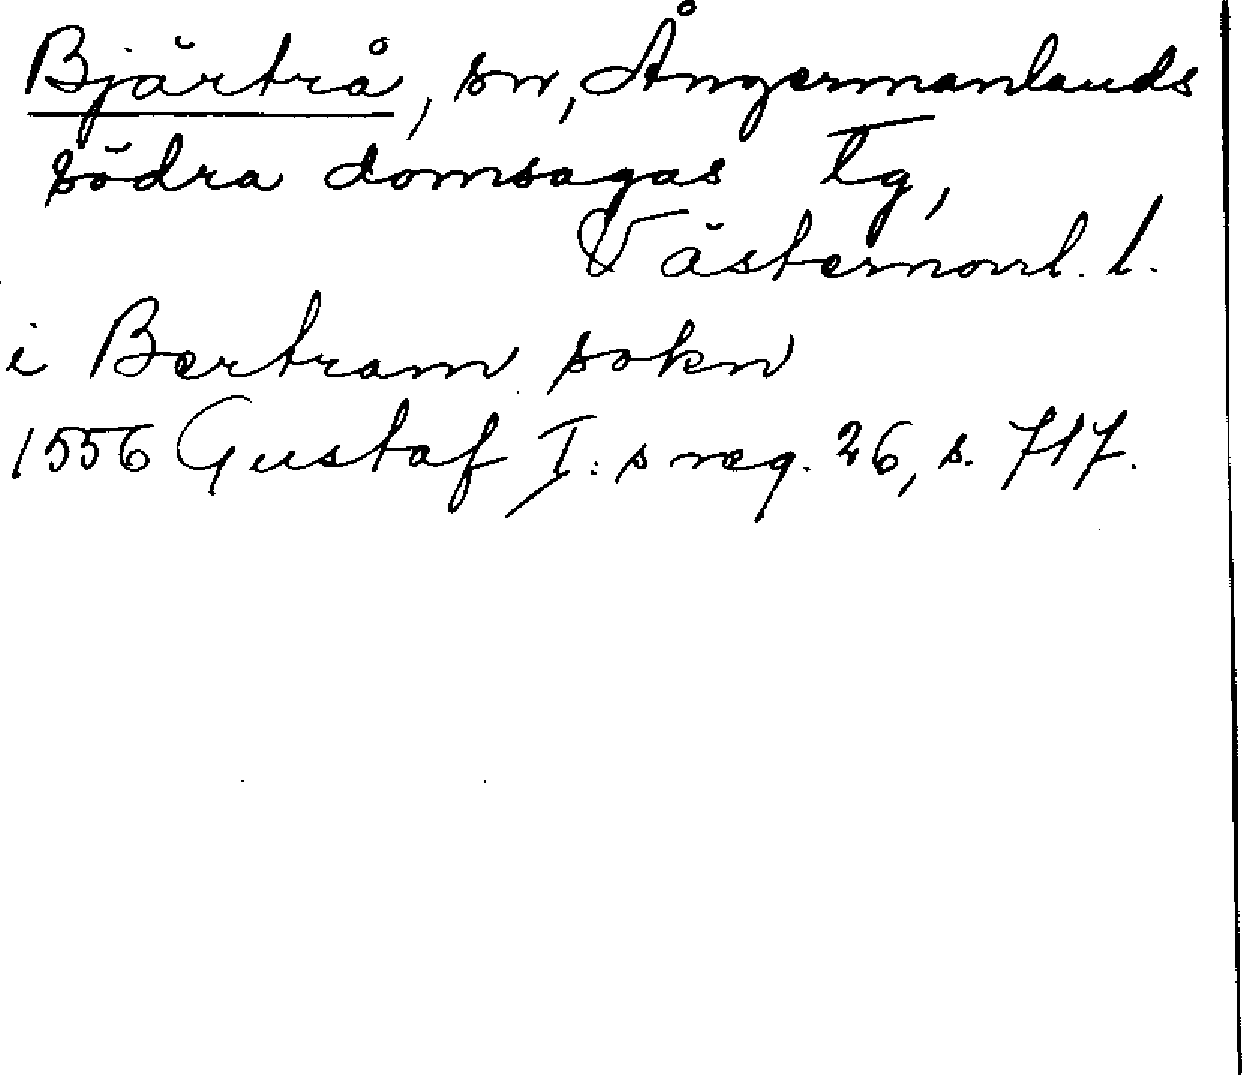 Bjärtrå, sn, Ångermanlands
södra domsagas tg,
Västernorrl. l.
i Bertram sokn
1556 Gustaf I:s reg. 26, s. 717.